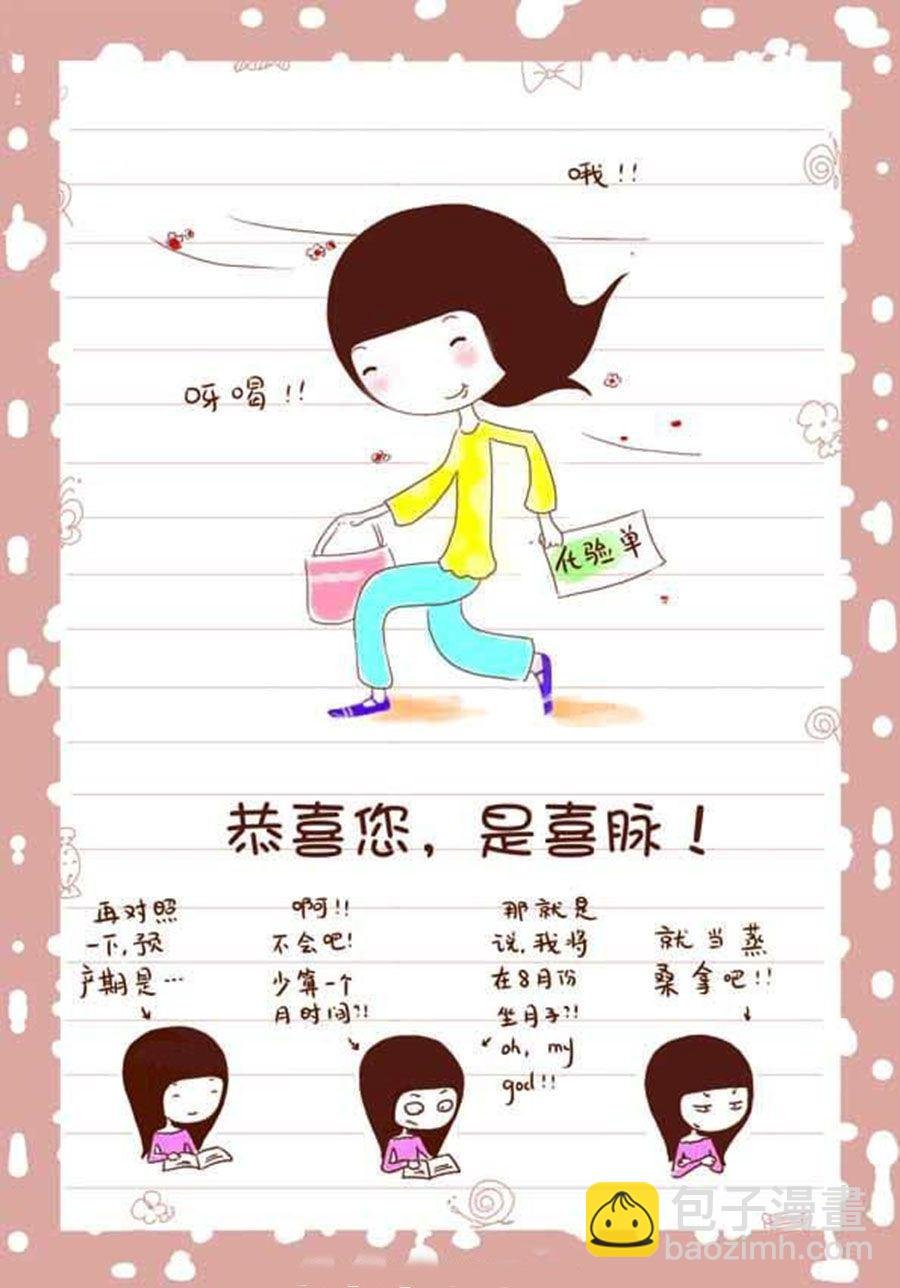 哦!!
呀喝!!
化验单
恭喜您，是喜脉！
再对照
一下,预
产期是…
啊!!
不会吧!
少算一个
月时间?!
那就是
说,我将
在8月份
坐月子?!
oh, my
god!!
就当蒸
桑拿吧!!
包子漫畫
baozimh.com